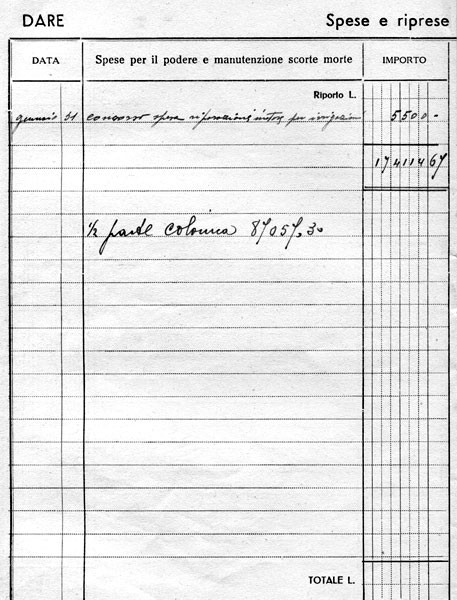 DARE Spese e riprese
DATA Spese per il podere e manutenzione scorte morte IMPORTO
Riporto L.
gennaio 31 concorso spese riparazioni per irrigazion 5500-
17411467
½ parte colonica 87057.30
TOTALE L.